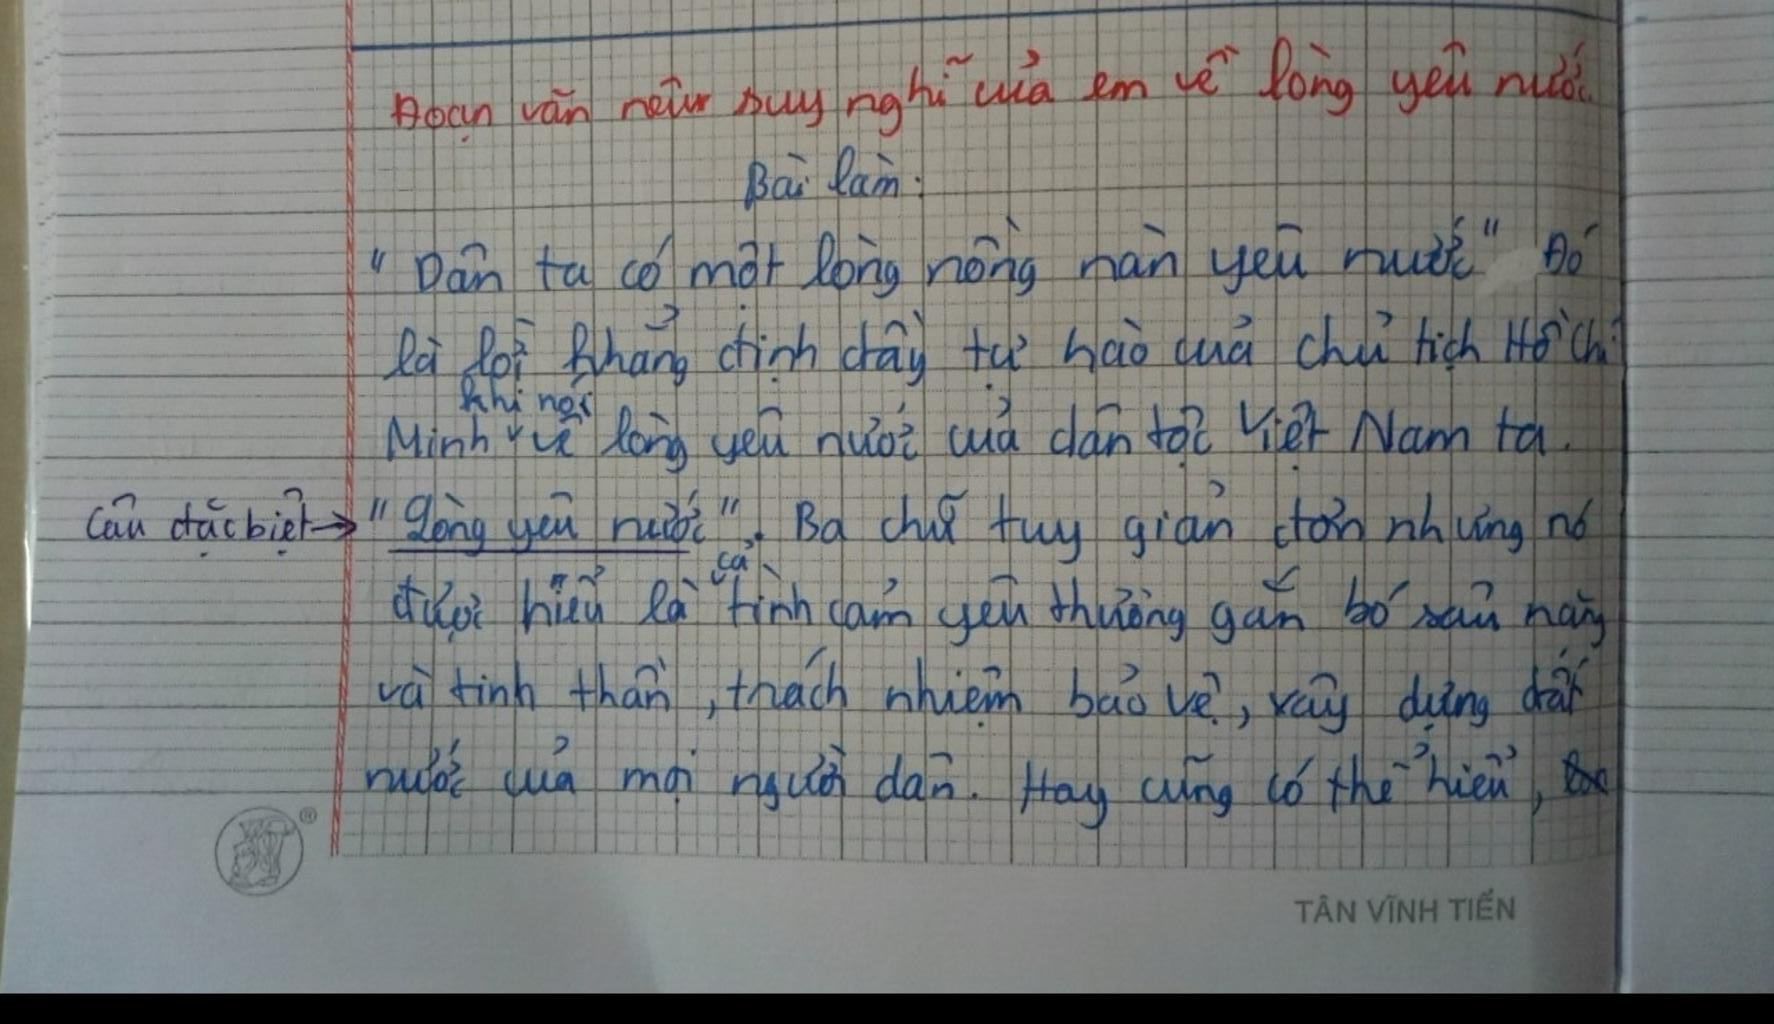 Đoạn văn nêu suy nghĩ của em về lòng yêu nước.
Bài làm:
"Dân ta có một lòng nồng nàn yêu nước" Đó
là lời khẳng định đầy tự hào của chủ tịch Hồ Chí
khi nói
Minh về lòng yêu nước của dân tộc Việt Nam ta.
Câu đặc biệt → "Lòng yêu nước". Ba chữ tuy giản đơn nhưng nó
cả
được hiểu là tình cảm yêu thương gắn bó sâu nặng
và tinh thần, trách nhiệm bảo vệ, xây dựng đất
nước của mọi người dân. Hay cũng có thể hiểu,
TÂN VĨNH TIẾN
®